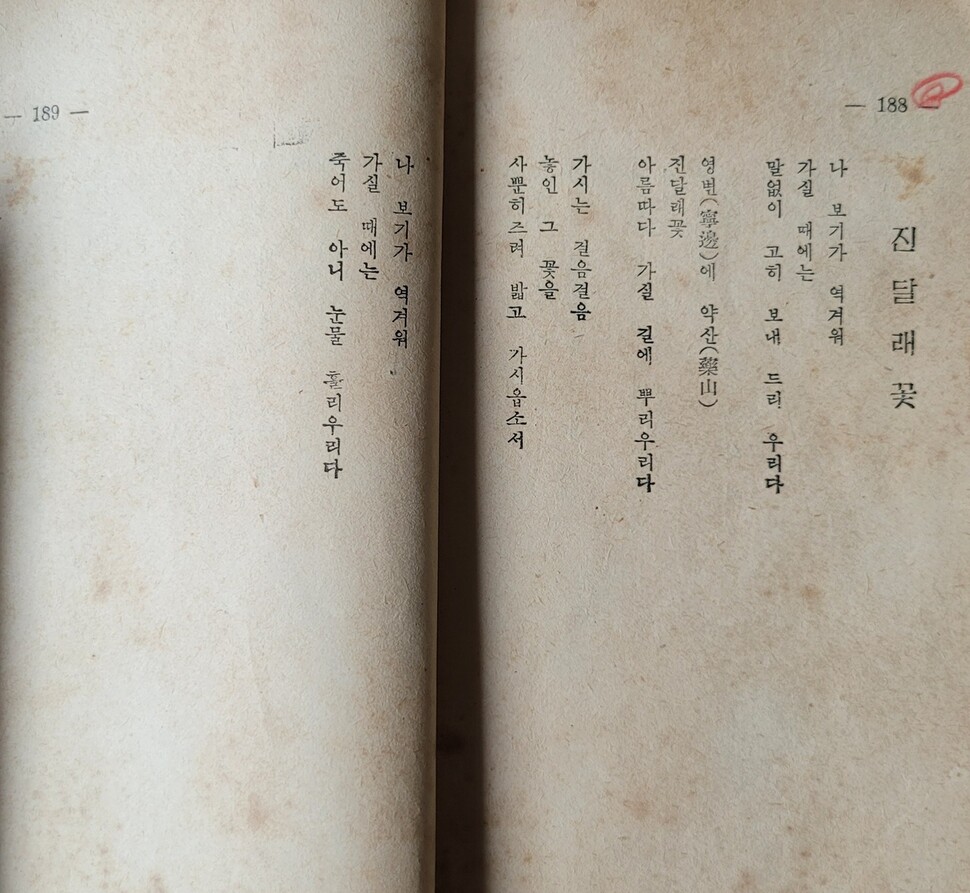 — 188 —
진달래꽃
나 보기가 역겨워
가실 때에는
말없이 고히 보내 드리 우리다
영변(寧邊)에 약산(藥山)
진달래꽃
아름따다 가실 길에 뿌리우리다
가시는 걸음걸음
놓인 그 꽃을
사뿐히즈려 밟고 가시옵소서
— 189 —
나 보기가 역겨워
가실 때에는
죽어도 아니 눈물 흘리우리다